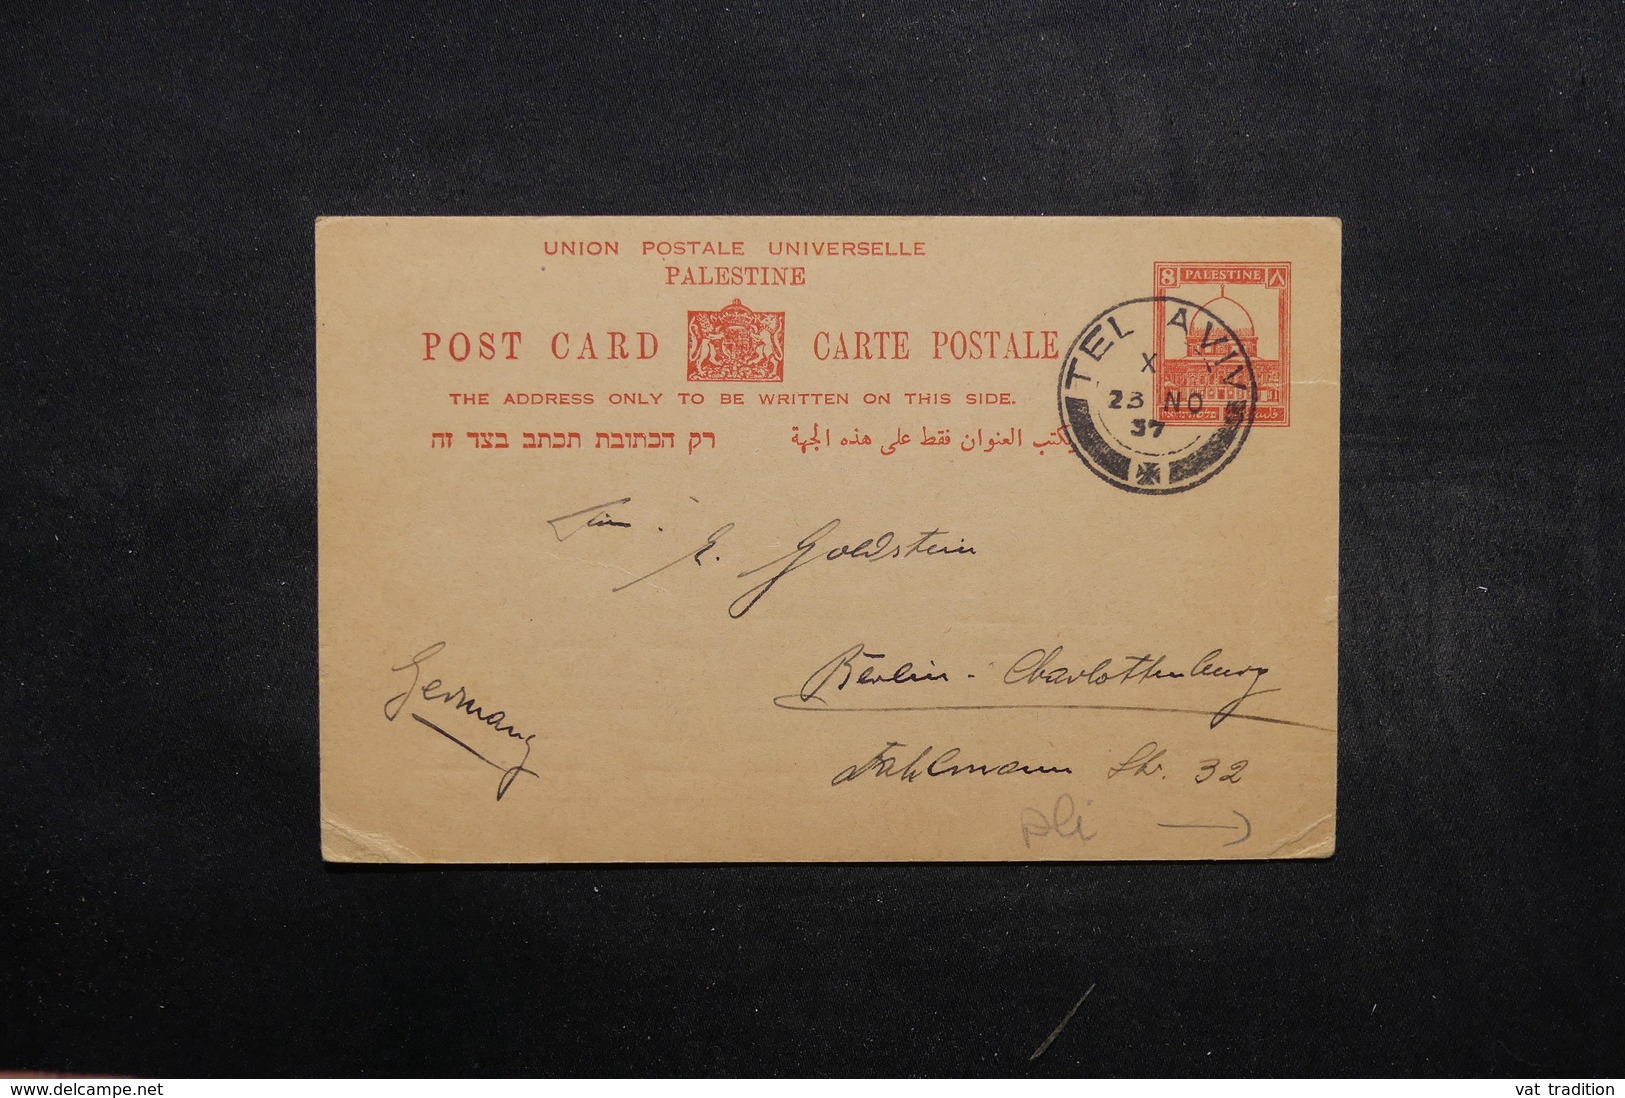 UNION POSTALE UNIVERSELLE
PALESTINE
POST CARD CARTE POSTALE
THE ADDRESS ONLY TO BE WRITTEN ON THIS SIDE.
רק הכתובת תכתב בצד זה
يكتب العنوان فقط على هذه الجهة
8 PALESTINE ٨
TEL AVIV
X
23 NO
37
E. Goldstein
Berlin - Charlottenburg
Germany
Dahlmann Str. 32
pli
delcampe.net
vat tradition